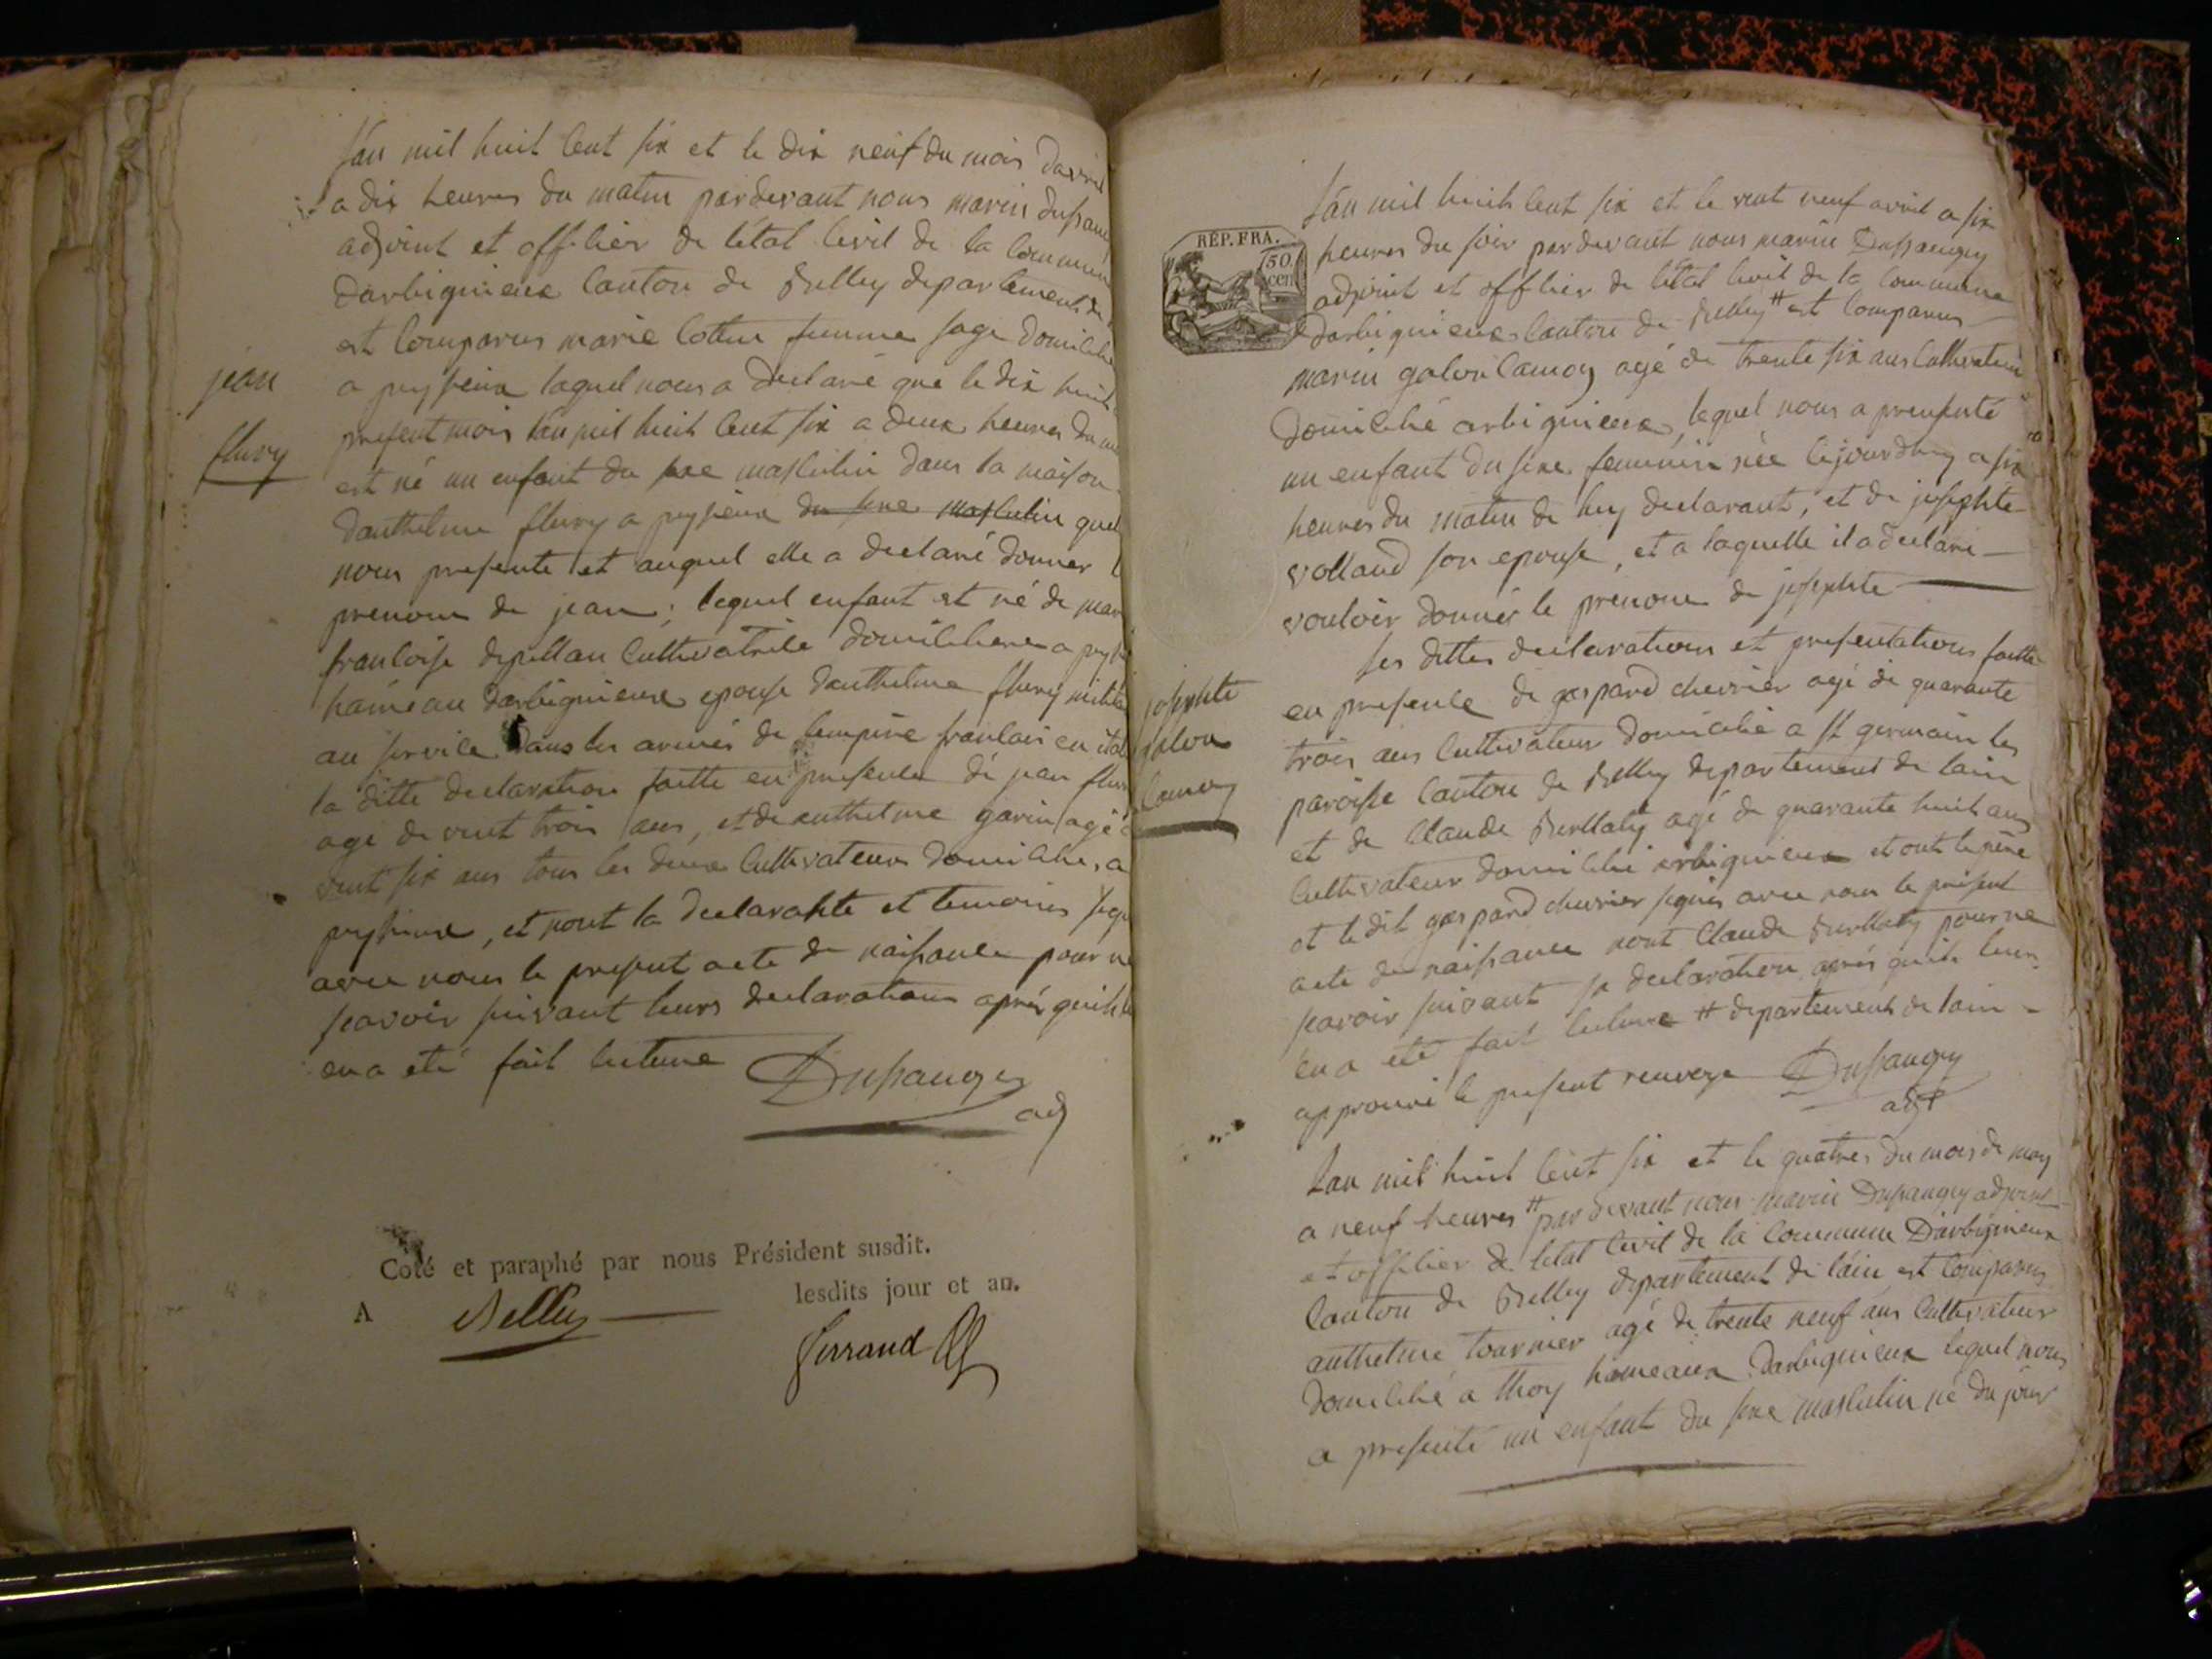 jean
fleury
Lan mil huit Cent six et le dix neuf du mois davril
a dix heures du matin pardevant nous marin dupan
adjoint et officier de létat Civil de la Commune
darbignieux Canton de Belley departement de
est Comparus marie Cottin femme sage domiciliée
a peyzieux laquel nous a declaré que le dix huit
present mois lan mil huit Cent six a deux heures du
est né un enfant du sexe masculin dans la maison
danthelme fleury a peyzieux du sexe masculin quel
nous presente et auquel elle a declaré donner l
prenom de jean; lequel enfant est né de mar
francoise depellan Cultivatrice domiciliere a peyzi
haméau darbignieux epouse danthelme fleury milit
au service dans les armés de lempire francais en ital
la ditte declaration faitte en presence de jean fleur
age de vint trois ans, et de anthelme garin agé d
vint six ans tous les deux Cultivateurs domicilies, a
peyzieux, et nont la declarante et temoins signé
avec nous le present acte de naissance pour ne
scavoir suivant leurs declarations aprés quils l
en a eté fait lecture Dupaugey
adj
Coté et paraphé par nous Président susdit.
A Belley lesdits jour et an.
Ferrand
REP. FRA.
50 cen
josephte
galon
Camoz
Lan mil huit Cent six et le vint neuf avril a six
heures du soir pardevant nous marin Dupaugey
adjoint et officier de létat Civil de la Commune
darbignieux Canton de Belley # est Comparus
marin galon Camoz agé de trente six ans Cultivateur
domicilié arbignieux, lequel nous a presenté
un enfant du sexe feminin née cejourdhuy a six
heures du matin de luy declarant, et de josephte
volland son epouse, et a laquelle il a declaré
vouloir donner le prenom de josephte
les dittes declarations et presentations faitte
en presence de gaspard chevrier agé de quarante
trois ans Cultivateur domicilié a St germain les
paroisse Canton de Belley departement de lain
et de Claude Berllaty agé de quarante huit ans
Cultivateur domicilié arbignieux et ont le pére
et le dit gaspard chevrier signés avec nous le présent
acte de naissance nont Claude Berllaty pour ne
scavoir suivant sa declaration aprés quils leur
en a eté fait lecture # departement de lain
approuvé le present renvoye Dupaugey
adjt
Lan mil huit Cent six et le quatres du mois de may
a neuf heures # par devant nous marin Dupaugey adjoint
et officier de létat Civil de la Commune Darbignieux
Canton de Belley departement de lain est Comparus
anthelme tournier agé de trente neuf ans Cultivateur
domicilié a thoy hameaux Darbignieux lequel nous
a presenté un enfant du sexe masculin né du jour